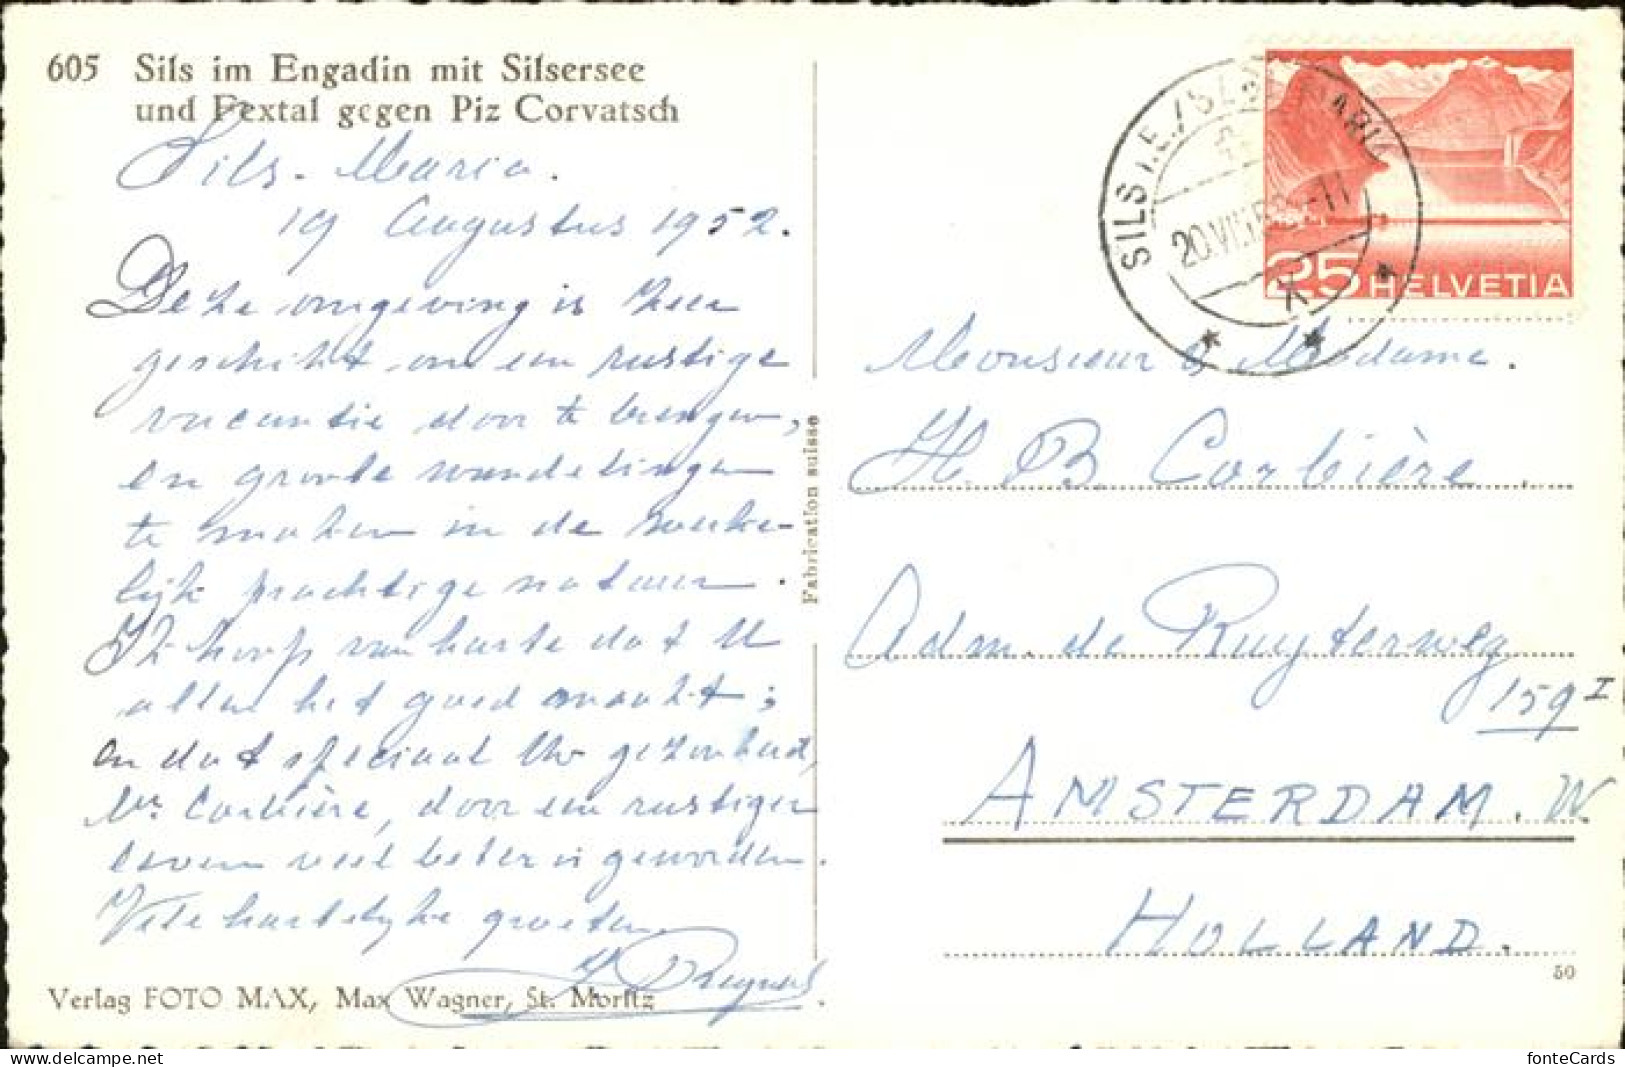 605 Sils im Engadin mit Silsersee
und Fextal gegen Piz Corvatsch
Sils-Maria.
19 Augustus 1952.
Deze omgeving is zeer
geschikt om een rustige
vacantie door te brengen,
en groote wandelingen
te maken in de werke-
lijk prachtige natuur.
Ik hoop van harte dat U
allen het goed maakt;
en dat speciaal Uw gezondheid,
Mr. Corbière, door een rustiger
leven veel beter is geworden.
Vele hartelijke groeten
Verlag FOTO MAX, Max Wagner, St. Moritz
Fabrication suisse
SILS I.E./SEGL MARIA
20.VIII.52.-11
25 HELVETIA
Monsieur & Madame.
H. B. Corbière.
Adm. de Ruyterweg
159 I
AMSTERDAM. W.
HOLLAND.
50
fonteCards